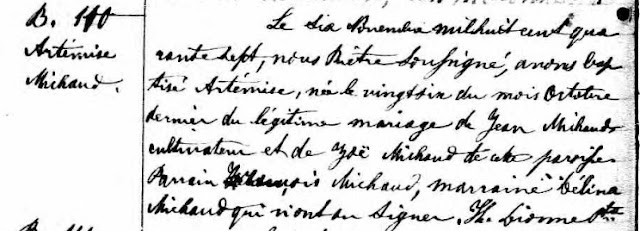 B. 110
Artémise
Michaud.
Le six Novembre mil huit cent qua
rante sept, nous Prêtre Soussigné, avons bap
tisé Artémise, née le vingt six du mois Octobre
dernier du légitime mariage de Jean Michaud
cultivateur et de Zoë Michaud de cette paroisse
Parrain François Michaud, marraine Délina
Michaud qui n'ont su signer. Ptre
B.